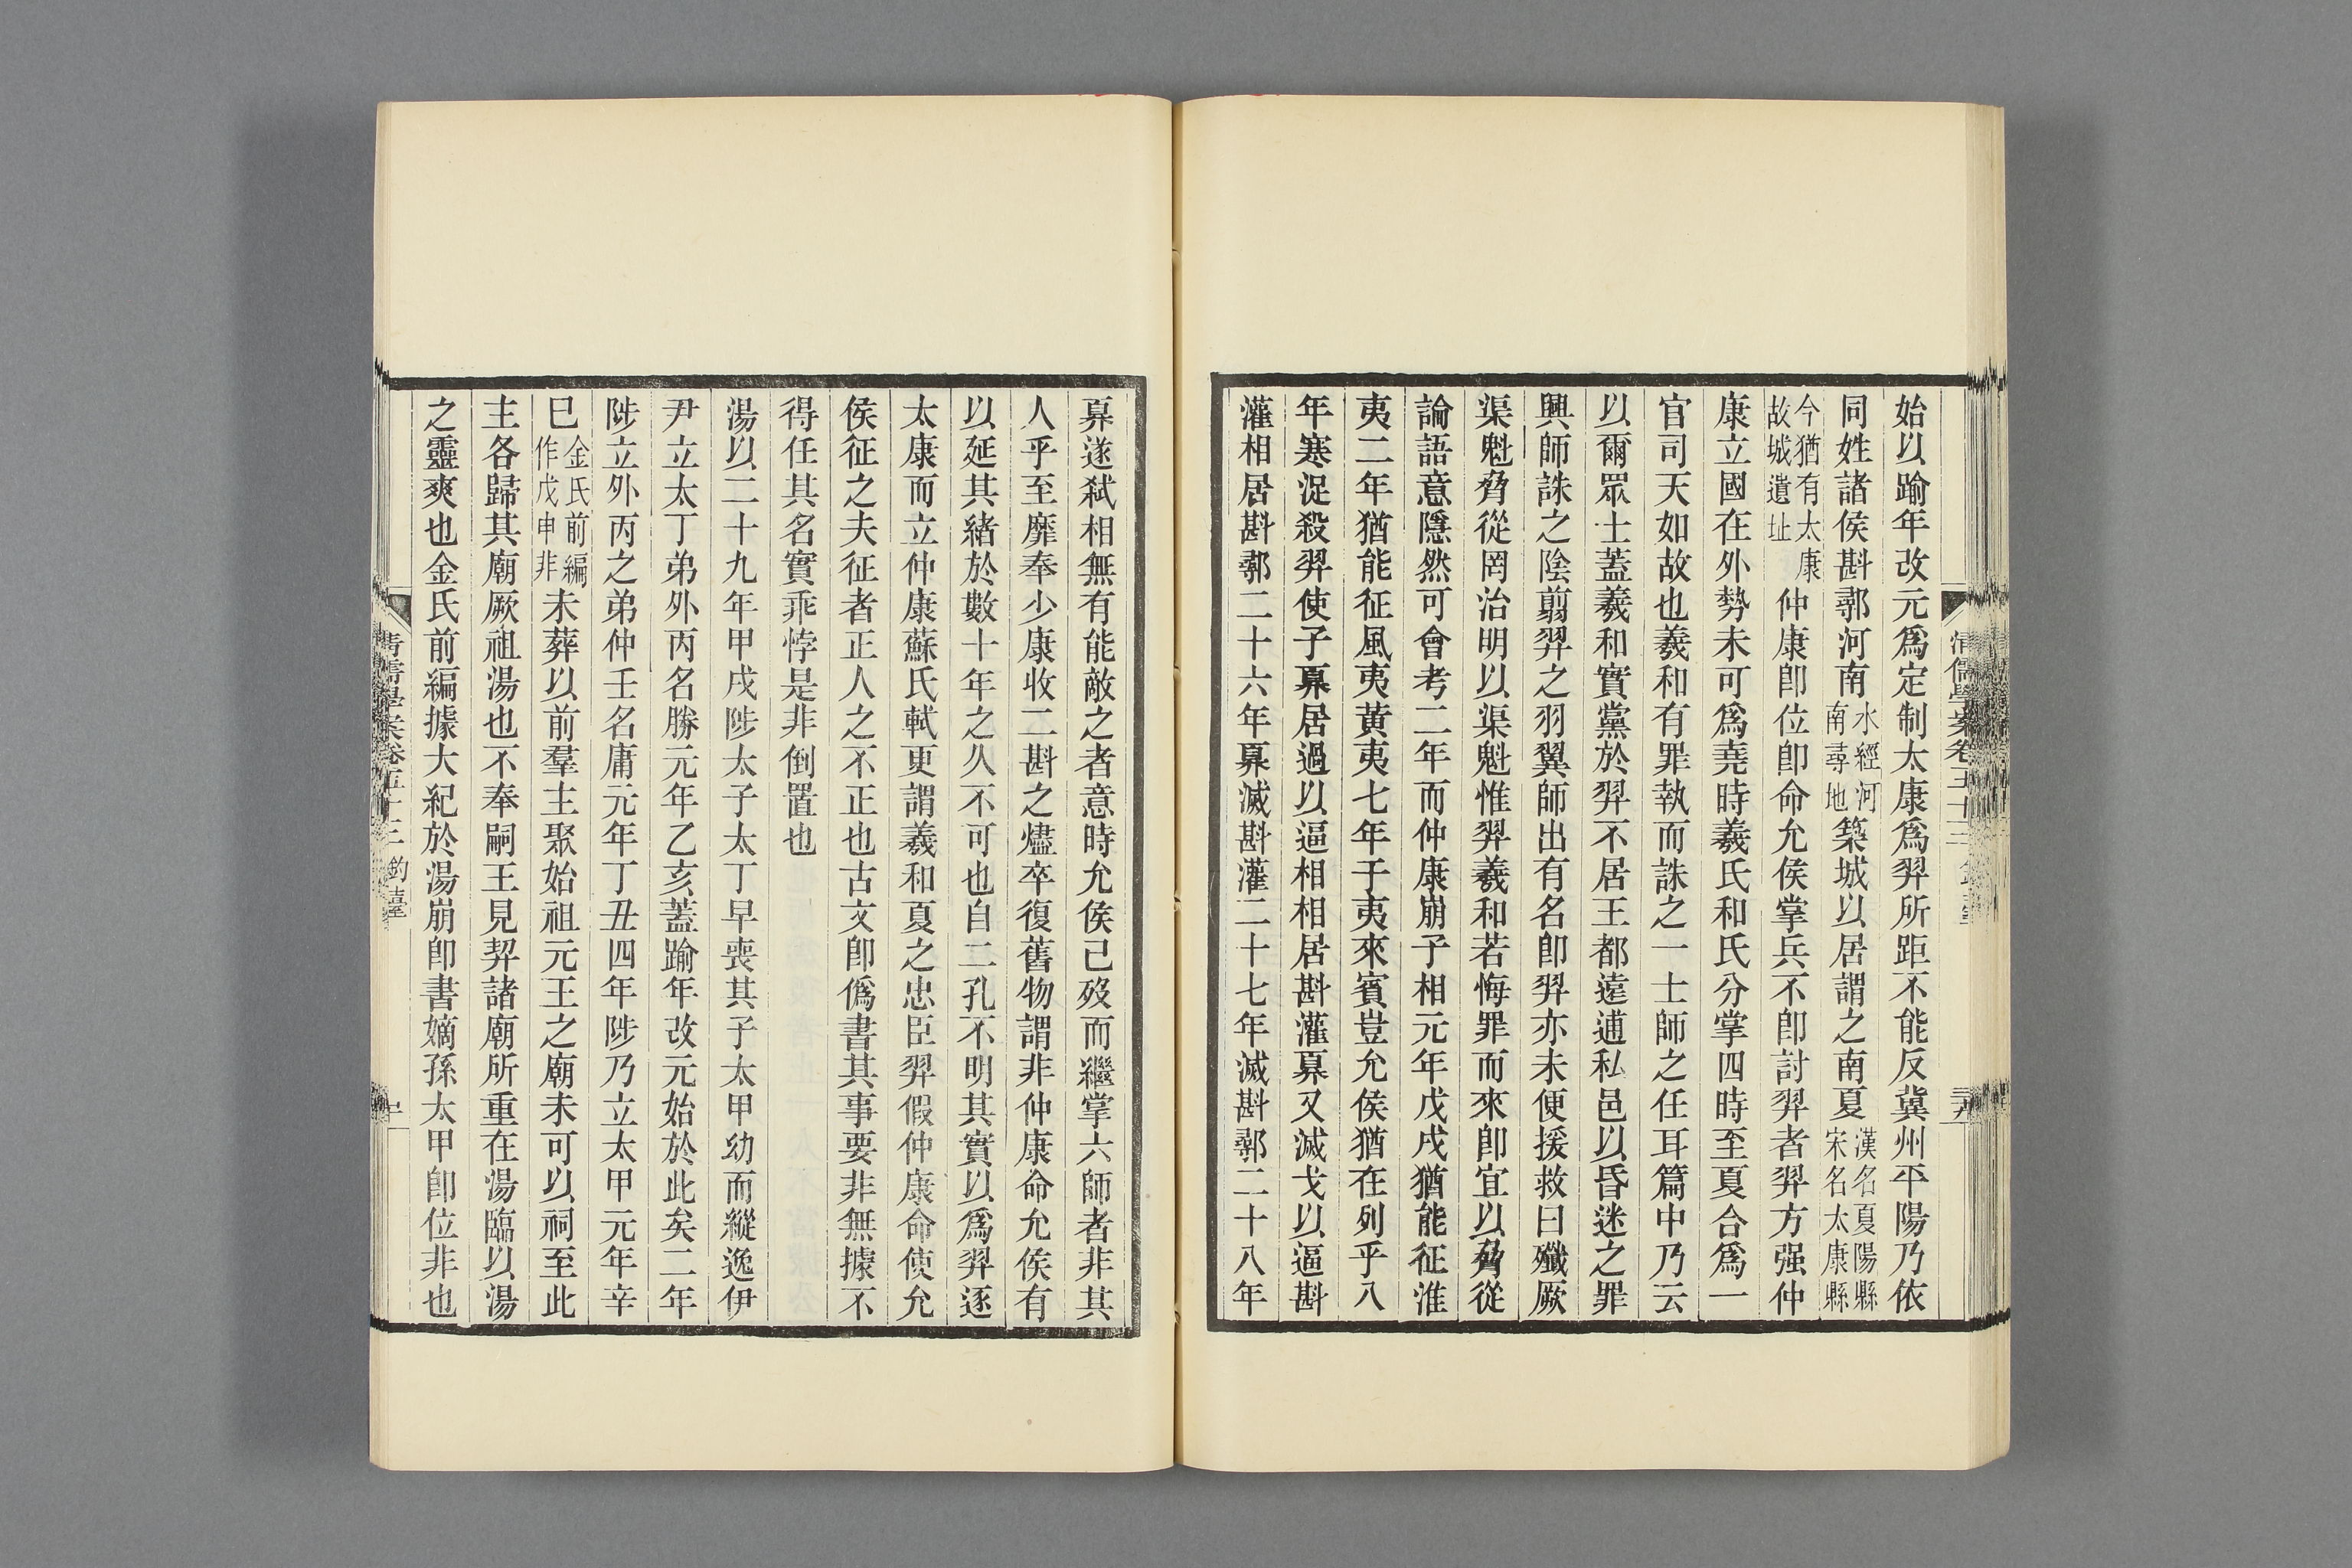 始以踰年改元爲定制太康爲羿所距不能反冀州平陽乃依
同姓諸侯斟鄩河南水經河南尋地築城以居謂之南夏漢名夏陽縣宋名太康縣
今猶有太康故城遺址仲康卽位卽命允侯掌兵不卽討羿者羿方强仲
康立國在外勢未可爲堯時羲氏和氏分掌四時至夏合爲一
官司天如故也羲和有罪執而誅之一士師之任耳篇中乃云
以爾眾士蓋羲和實黨於羿不居王都遠逋私邑以昏迷之罪
興師誅之陰翦羿之羽翼師出有名卽羿亦未便援救曰殲厥
渠魁脅從罔治明以渠魁惟羿羲和若悔罪而來卽宜以脅從
論語意隱然可會考二年而仲康崩子相元年戊戌猶能征淮
夷二年猶能征風夷黃夷七年于夷來賓豈允侯猶在列乎八
年寒浞殺羿使子奡居過以逼相相居斟灌奡又滅戈以逼斟
灌相居斟鄩二十六年奡滅斟灌二十七年滅斟鄩二十八年
奡遂弑相無有能敵之者意時允侯已歿而繼掌六師者非其
人乎至靡奉少康收二斟之燼卒復舊物謂非仲康命允侯有
以延其緒於數十年之久不可也自二孔不明其實以爲羿逐
太康而立仲康蘇氏軾更謂羲和夏之忠臣羿假仲康命使允
侯征之夫征者正人之不正也古文卽僞書其事要非無據不
得任其名實乖悖是非倒置也
湯以二十九年甲戌陟太子太丁早喪其子太甲幼而縱逸伊
尹立太丁弟外丙名勝元年乙亥蓋踰年改元始於此矣二年
陟立外丙之弟仲壬名庸元年丁丑四年陟乃立太甲元年辛
巳金氏前編作戊申非未葬以前羣主聚始祖元王之廟未可以祠至此
主各歸其廟厥祖湯也不奉嗣王見羿諸廟所重在湯臨以湯
之靈爽也金氏前編據大紀於湯崩卽書嫡孫太甲卽位非也